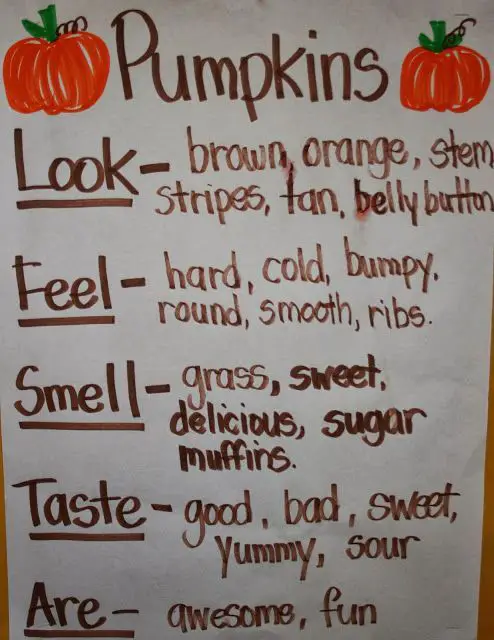 Pumpkins
Look- brown, orange, stem
stripes, tan, belly button
Feel- hard, cold, bumpy,
round, smooth, ribs.
Smell- grass, sweet,
delicious, sugar
muffins.
Taste- good, bad, sweet,
yummy, sour
Are- awesome, fun